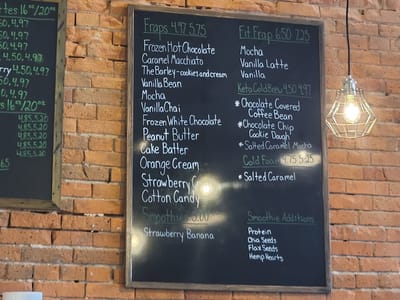 16oz/20oz
4.50, 4.97
4.50, 4.97
4.50, 4.97
16oz/20oz
4.85, 5.20
4.85, 5.20
4.85, 5.20
4.85, 5.20
Fraps 4.97 5.75
Frozen Hot Chocolate
Caramel Macchiato
The Barley - cookies and cream
Vanilla Bean
Mocha
Vanilla Chai
Frozen White Chocolate
Peanut Butter
Cake Batter
Orange Cream
Strawberry
Cotton Candy
Smoothie 5.00
Strawberry Banana
Fit Frap 6.50 7.25
Mocha
Vanilla Latte
Vanilla
Keto Cold Brew 4.50 4.97
*Chocolate Covered
Coffee Bean
*Chocolate Chip
Cookie Dough
*Salted Caramel Mocha
Cold Foam 4.75 5.25
*Salted Caramel
Smoothie Additions
Protein
Chia Seeds
Flax Seeds
Hemp Hearts